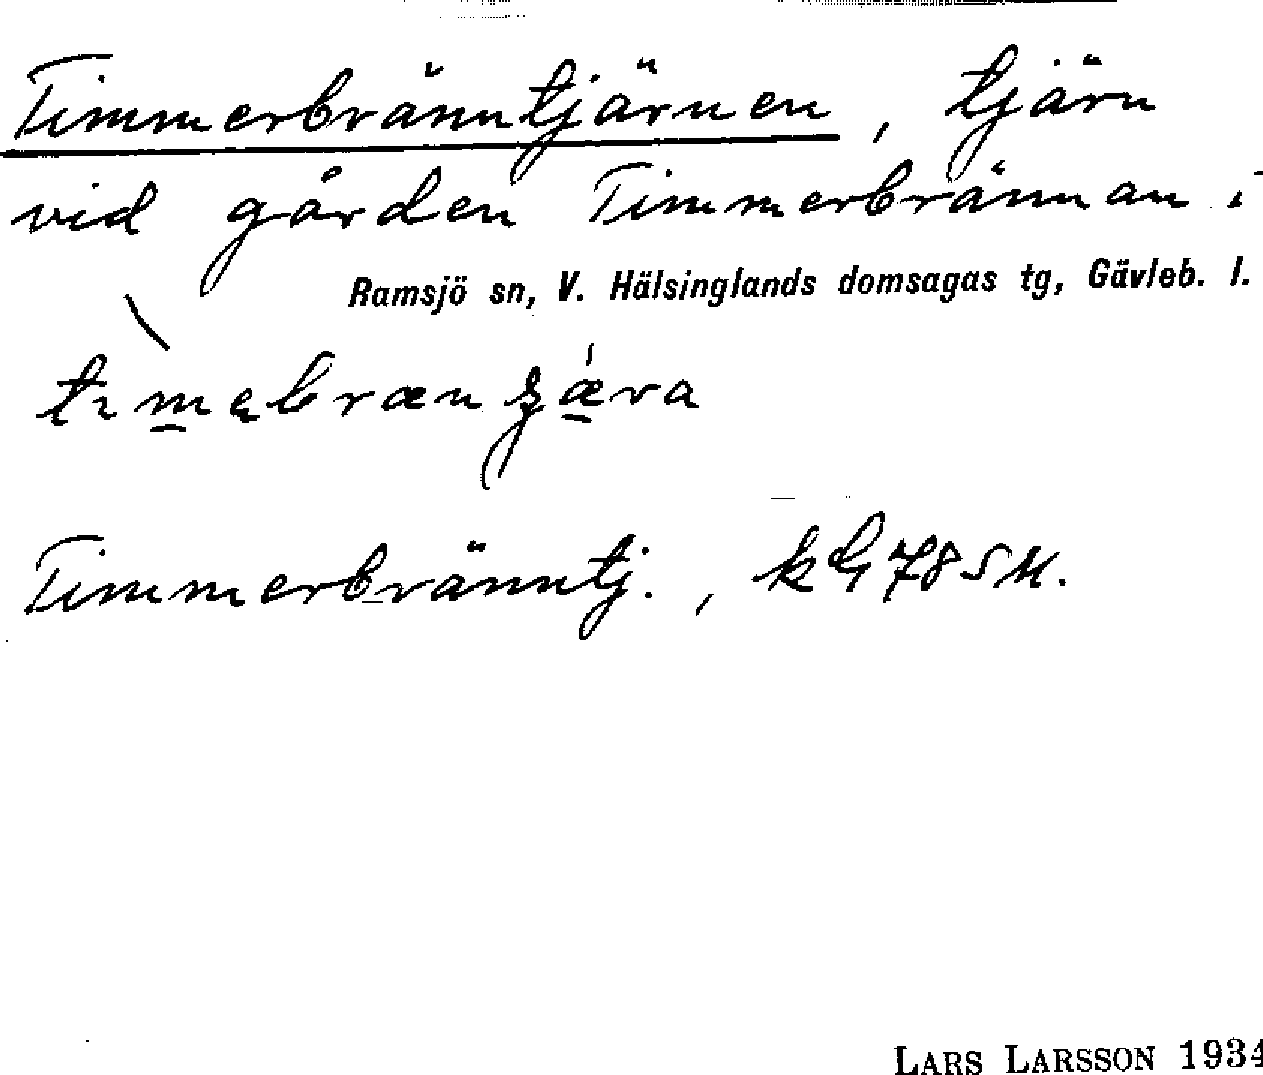 Timmerbränntjärnen, tjärn
vid gården Timmerbrännan i
Ramsjö sn, V. Hälsinglands domsagas tg, Gävleb. l.
Timmerbränntj., kG 78 SM.
LARS LARSSON 1934